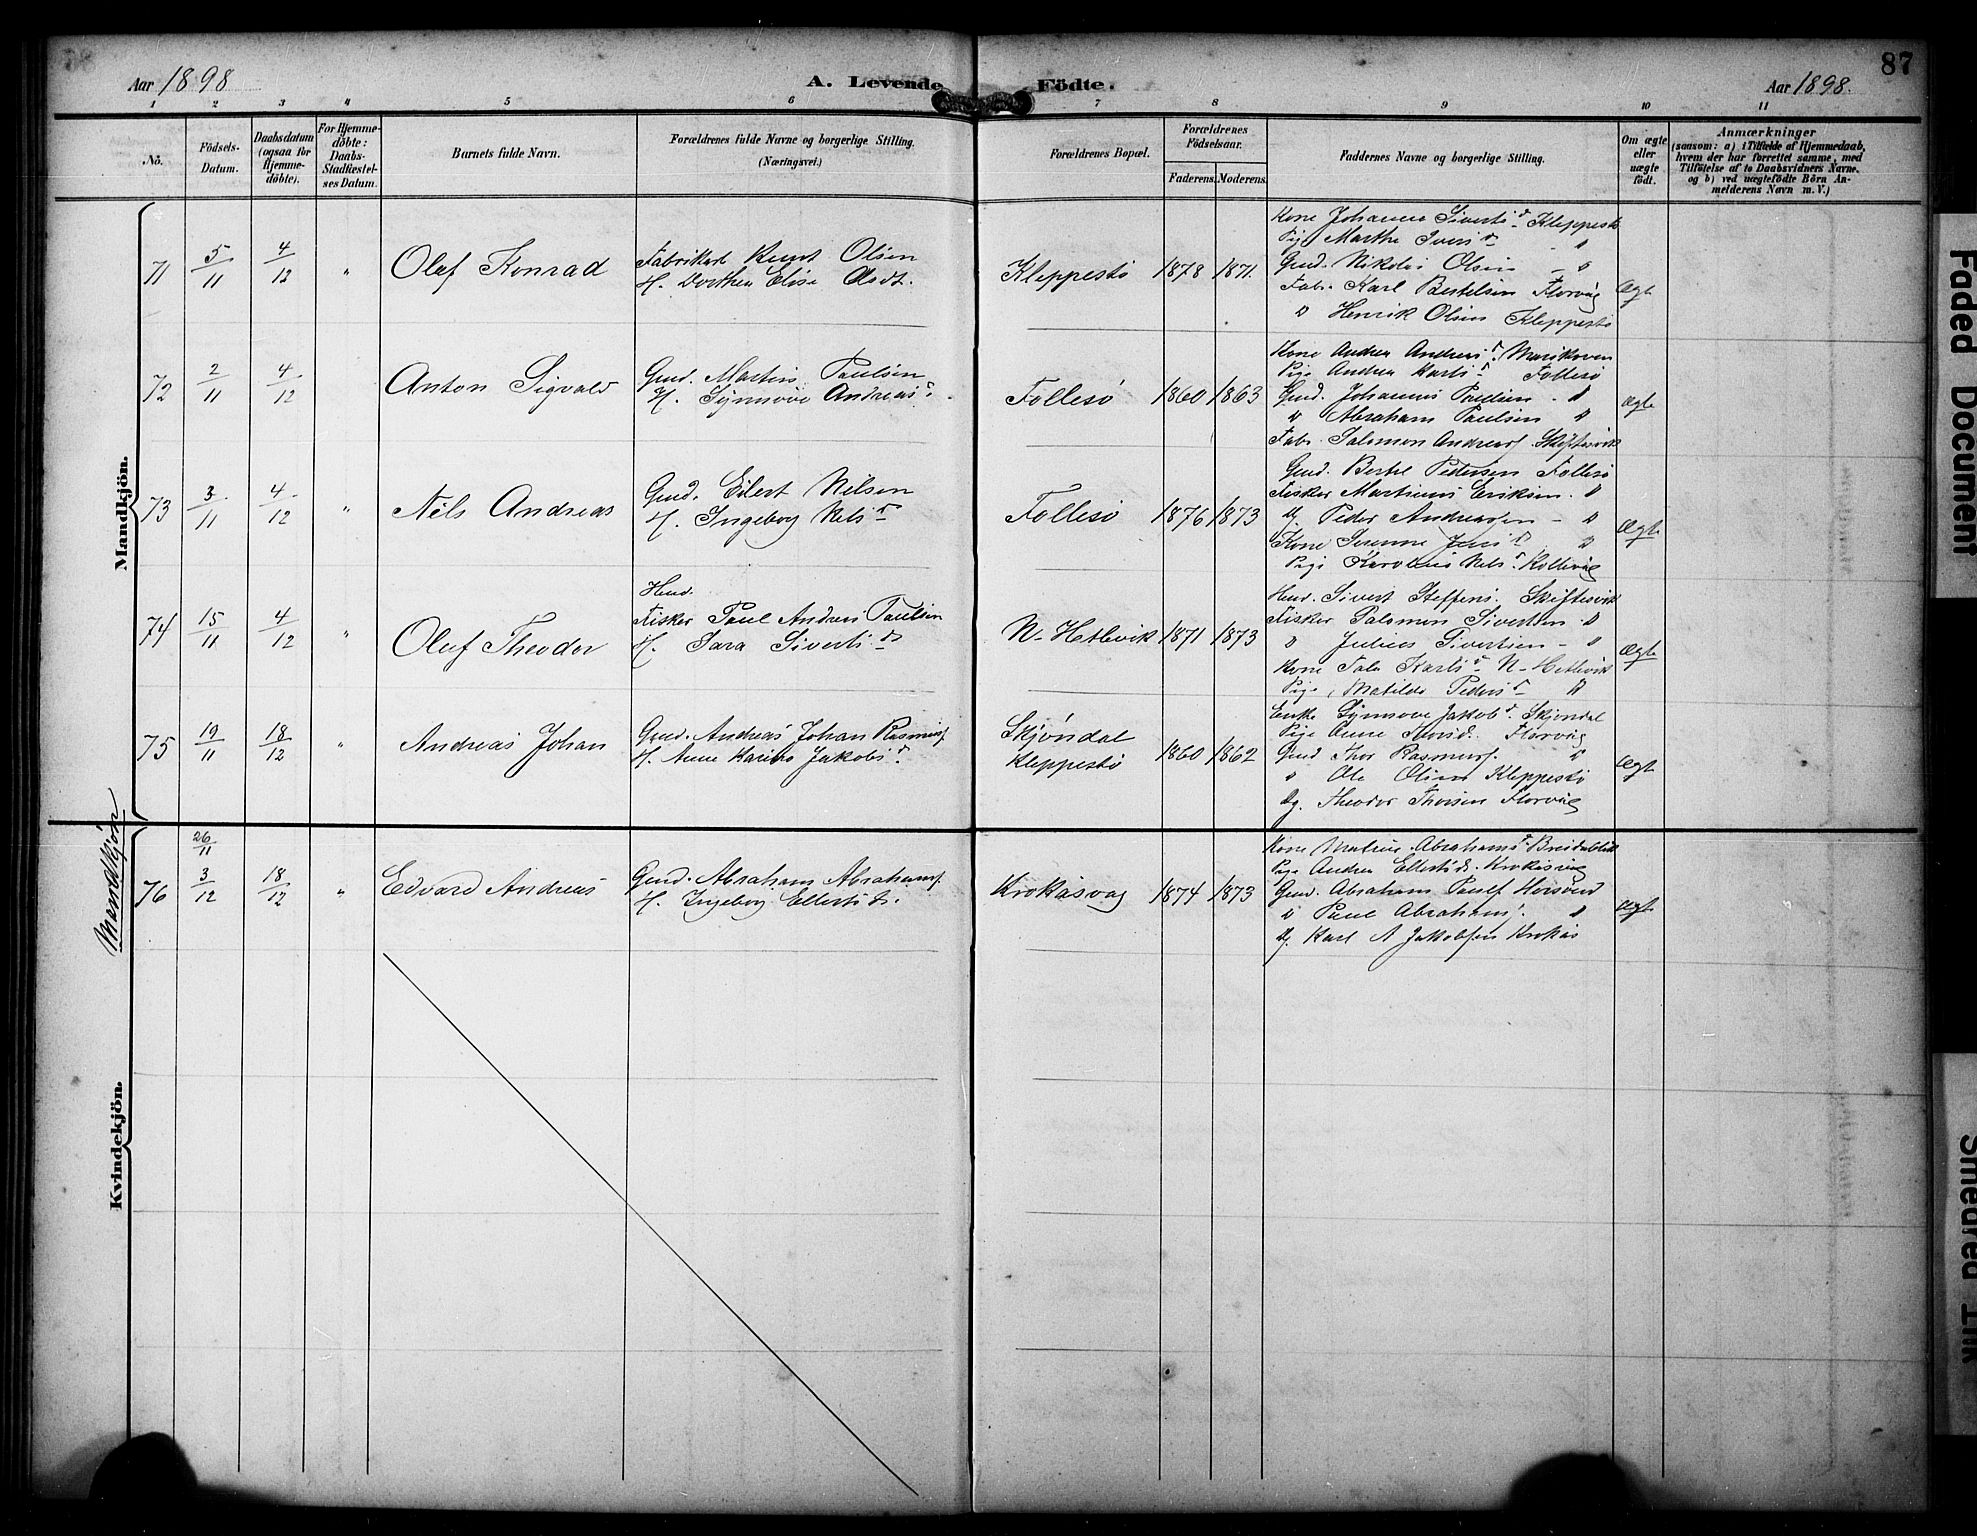 87
Aar 1898
A. Levende Födte.
Aar 1898.
1 2 3 4 5 6 7 8 9 10 11
No.
Födsels-
Datum.
Daabsdatum
(ogsaa for
Hjemme-
döbte).
For Hjemme-
döbte:
Daabs-
Stadfæstel-
ses Datum.
Barnets fulde Navn.
Forældrenes fulde Navne og borgerlige Stilling.
(Næringsvei.)
Forældrenes Bopæl.
Forældrenes
Födselsaar.
Faderens. Moderens.
Faddernes Navne og borgerlige Stilling.
Om ægte
eller
uægte
födt.
Anmærkninger
(saasom: a) i Tilfælde af Hjemmedaab,
hvem der har forrettet samme, med
Tilföielse af to Daabsvidners Navne.
og b) ved uægtefödte Börn An-
melderens Navn m. V.)
Mandkjön.
71
5/11
4/12
"
Olaf Konrad
Fabrikarb Knut Olsen
H. Dorthea Elise Olsdt.
Kleppestø
1878 1871.
Kone Johanne Siverts d Kleppestø
Pige Marthe Ivers d "
Gmd. Nikolai Olsen - "
Fab. Karl Bertelsen Florvåg
" Henrik Olsen Kleppestø
Ægte
72
2/11
4/12
Anton Sigvald
Gmd. Martin Paulsen
H. Synnøve Andreas d.
Follesø
1860 1863
Kone Andrea Andreas d.
Pige Andrea Karls d Follesø
Gmd. Johannes Paulsen - "
" Abraham Paulsen "
Fab. Salomon Andreas. Skiftesvik
Ægte
73
3/11
4/12
"
Nils Andreas
Gmd. Eilert Nilsen
H. Ingeborg Nels d
Follesø
1876 1873
Gmd. Bertel Pedersen Follesø
Fisker Martinus Eriksen. "
Ug. Peder Andreassen - "
Kone Serenne Jens d "
Pige Karoline Nels d Kollevåg
Ægte
74
15/11
4/12
"
Oluf Theodor
Hmd.
Fisker Paul Andreas Paulsen
H. Sara Siverts d
N- Hetlevik
1871 1873
Hmd. Sivert Steffens. Skiftesvik
Fisker Salomon Sivertsen "
" Julius Sivertsen - "
Kone Karls d N- Hetlevik
Pige Matilde Peders d "
Ægte
75
19/11
18/12
"
Andreas Johan
Gmd. Andreas Johan Rasmuss.
H. Anne Karine Jakobs d.
Skjøndal
Kleppestø
1860 1862
Enke Synnøve Jakob d. Skjøndal
Pige Anne Florvåg
Gmd Thor Rasmuss. "
" Ole Olsen Kleppestø
Ug. Theodor Thorsen Florvåg
Ægte
Mandkjön
76
26/11
3/12
18/12
"
Edvard Andreas
Gmd. Abraham Abrahams.
H. Ingeborg Ellertsd.
Krokåsvåg
1874 1873
Kone Abrahams d Breidablik
Pige Andrea Ellertsd. Krokåsvåg
Gmd. Abraham
" Paul Abrahams. "
Ug. Karl A Jakobsen Krokås
Ægte
Kvindekjön.
Faded Document
Smeared Ink